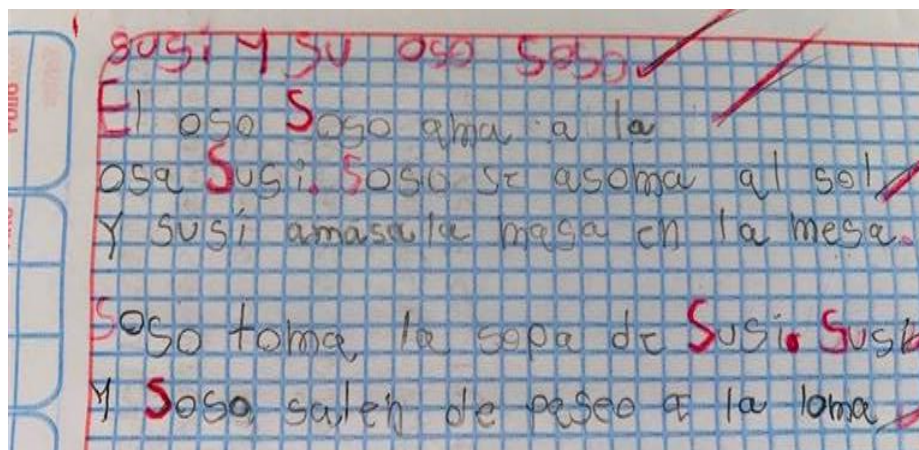 susi y su oso soso
El oso Soso ama a la
osa Susi. Soso se asoma al sol
Y susi amasa la masa en la mesa.
Soso toma la sopa de Susi. Susi
Y Soso salen de paseo a la loma